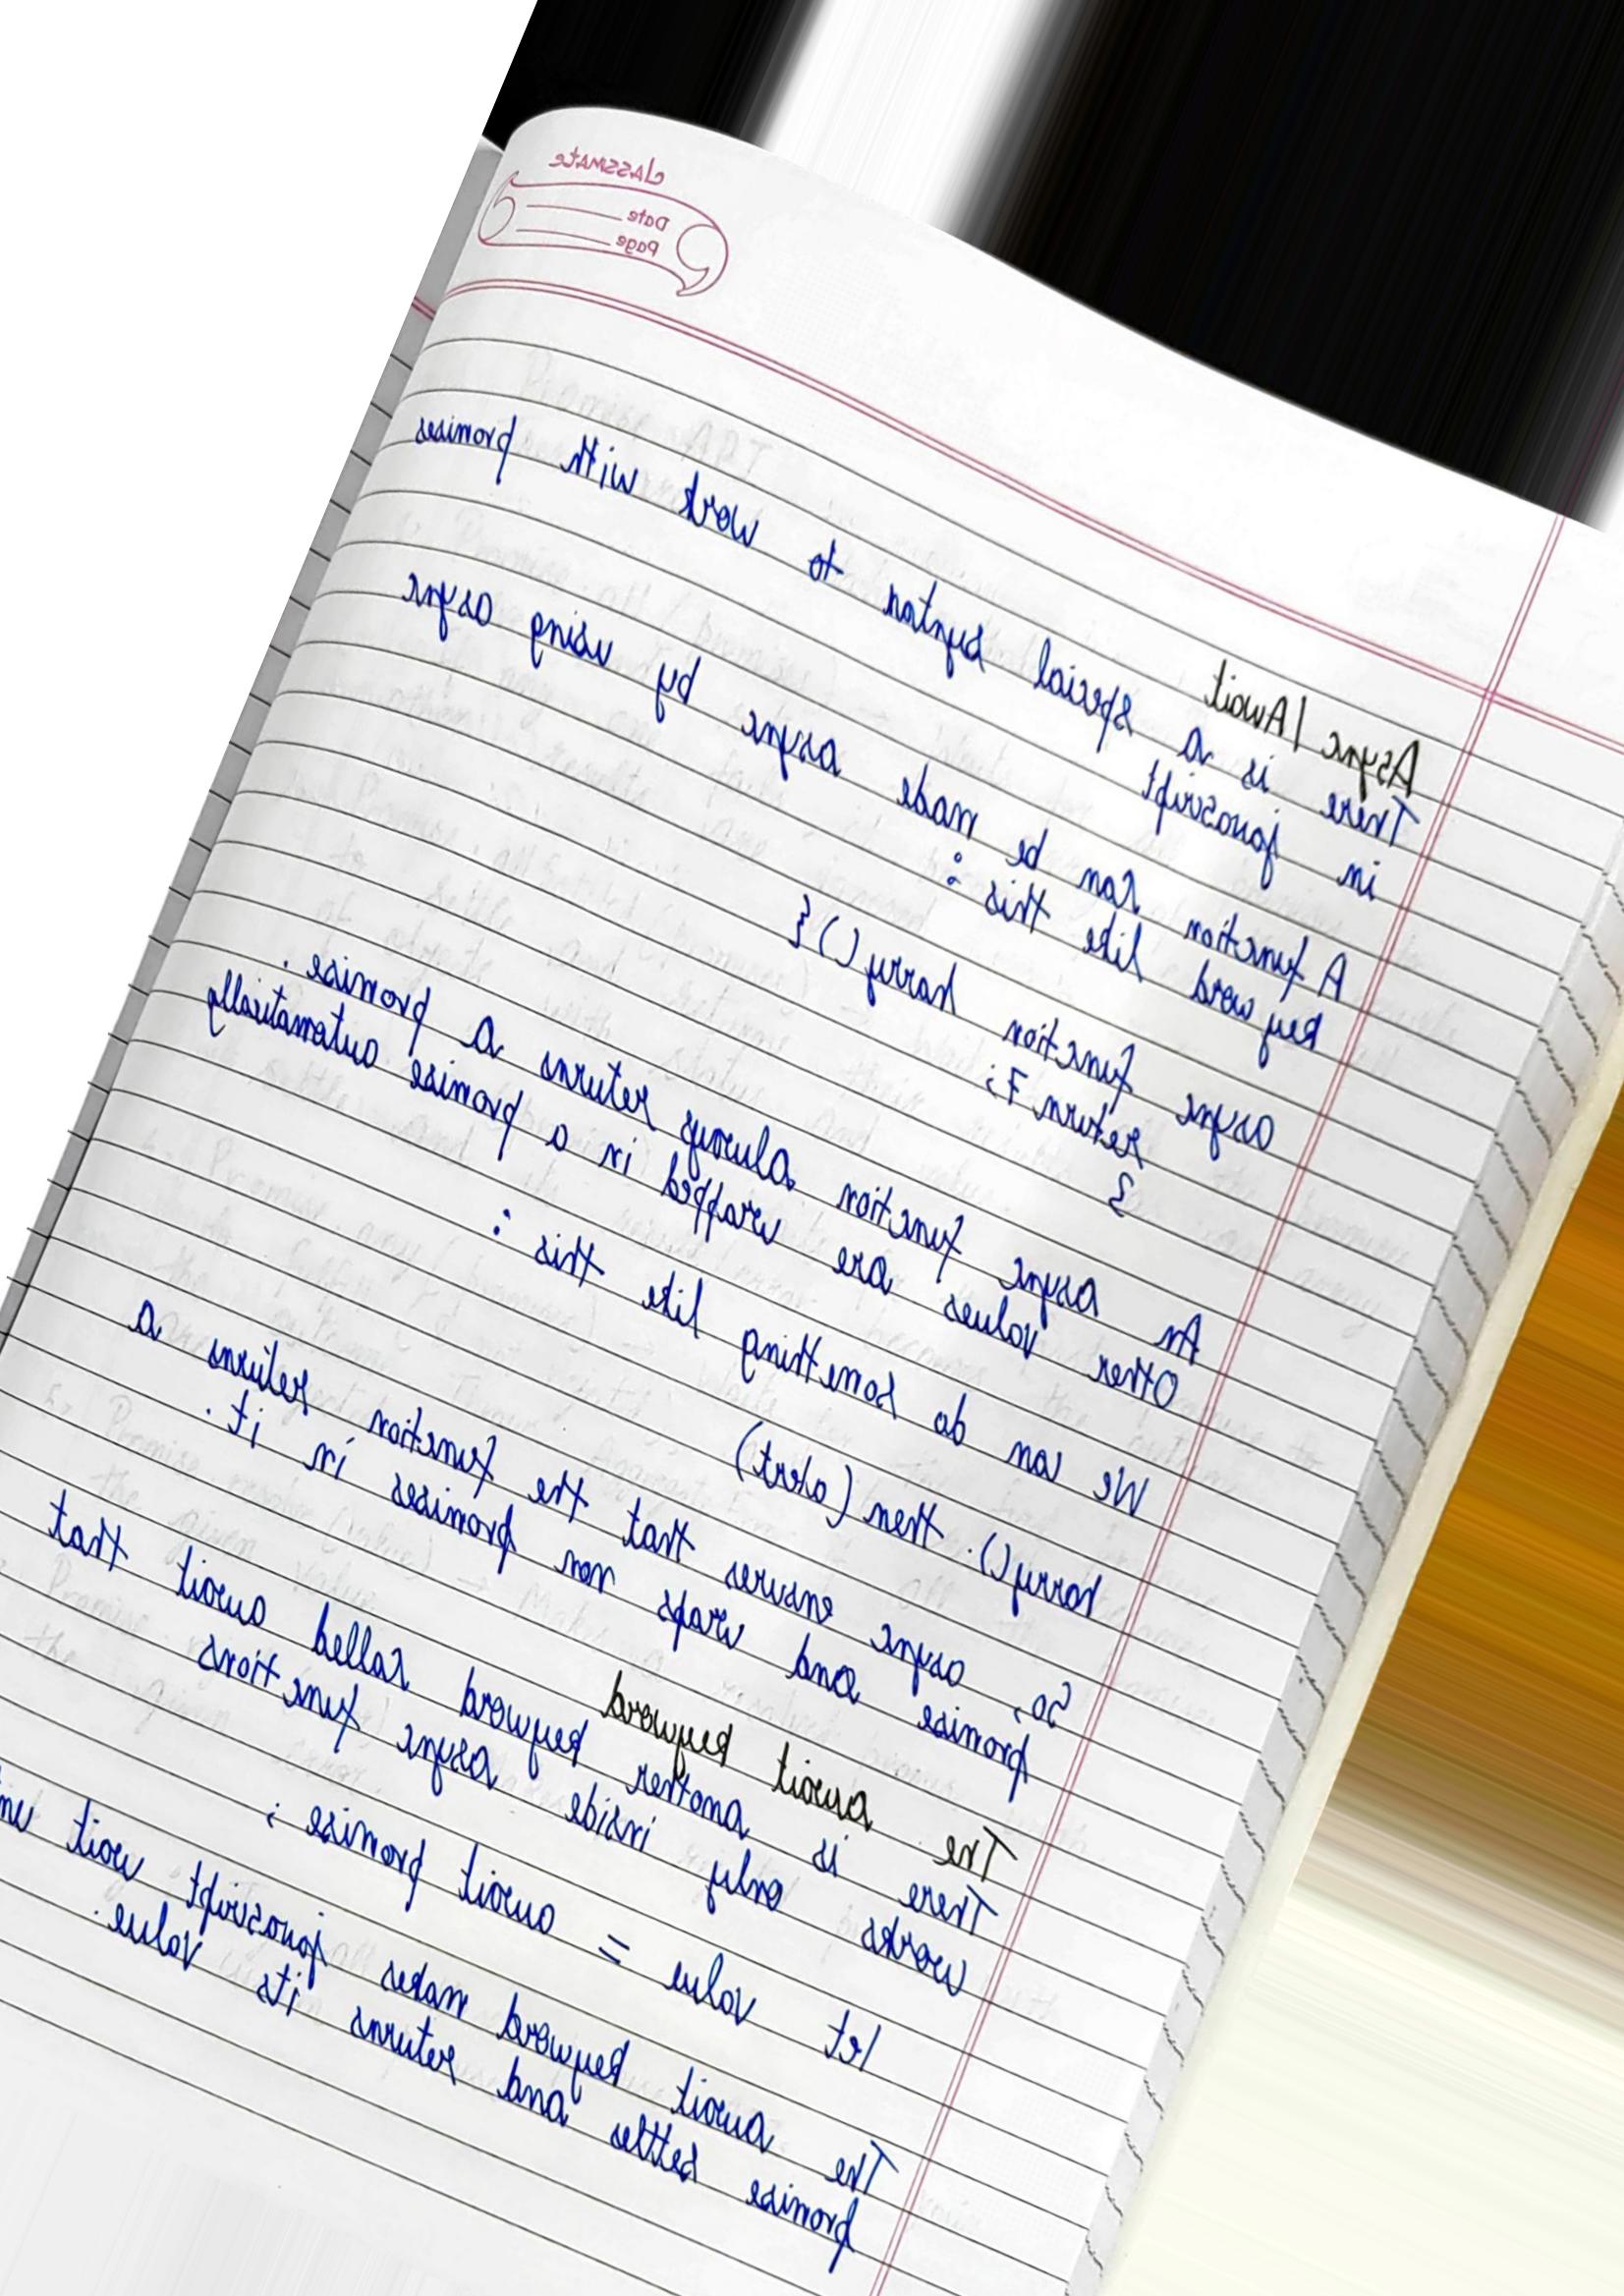 classmate
Date
Page
Async / Await
There is a special syntax to work with promises
in javascript
A function can be made async by using async
key word like this :
async function harry () {
return 7;
}
An async function always returns a promise.
Other values are wrapped in a promise automatically
We can do something like this :
harry(). then (alert)
So, async ensures that the function returns a
promise and wraps non promises in it.
The await keyword
There is another keyword called await that
works only inside async functions
let value = await promise ;
The await keyword makes javascript wait
promise settles and returns its value.